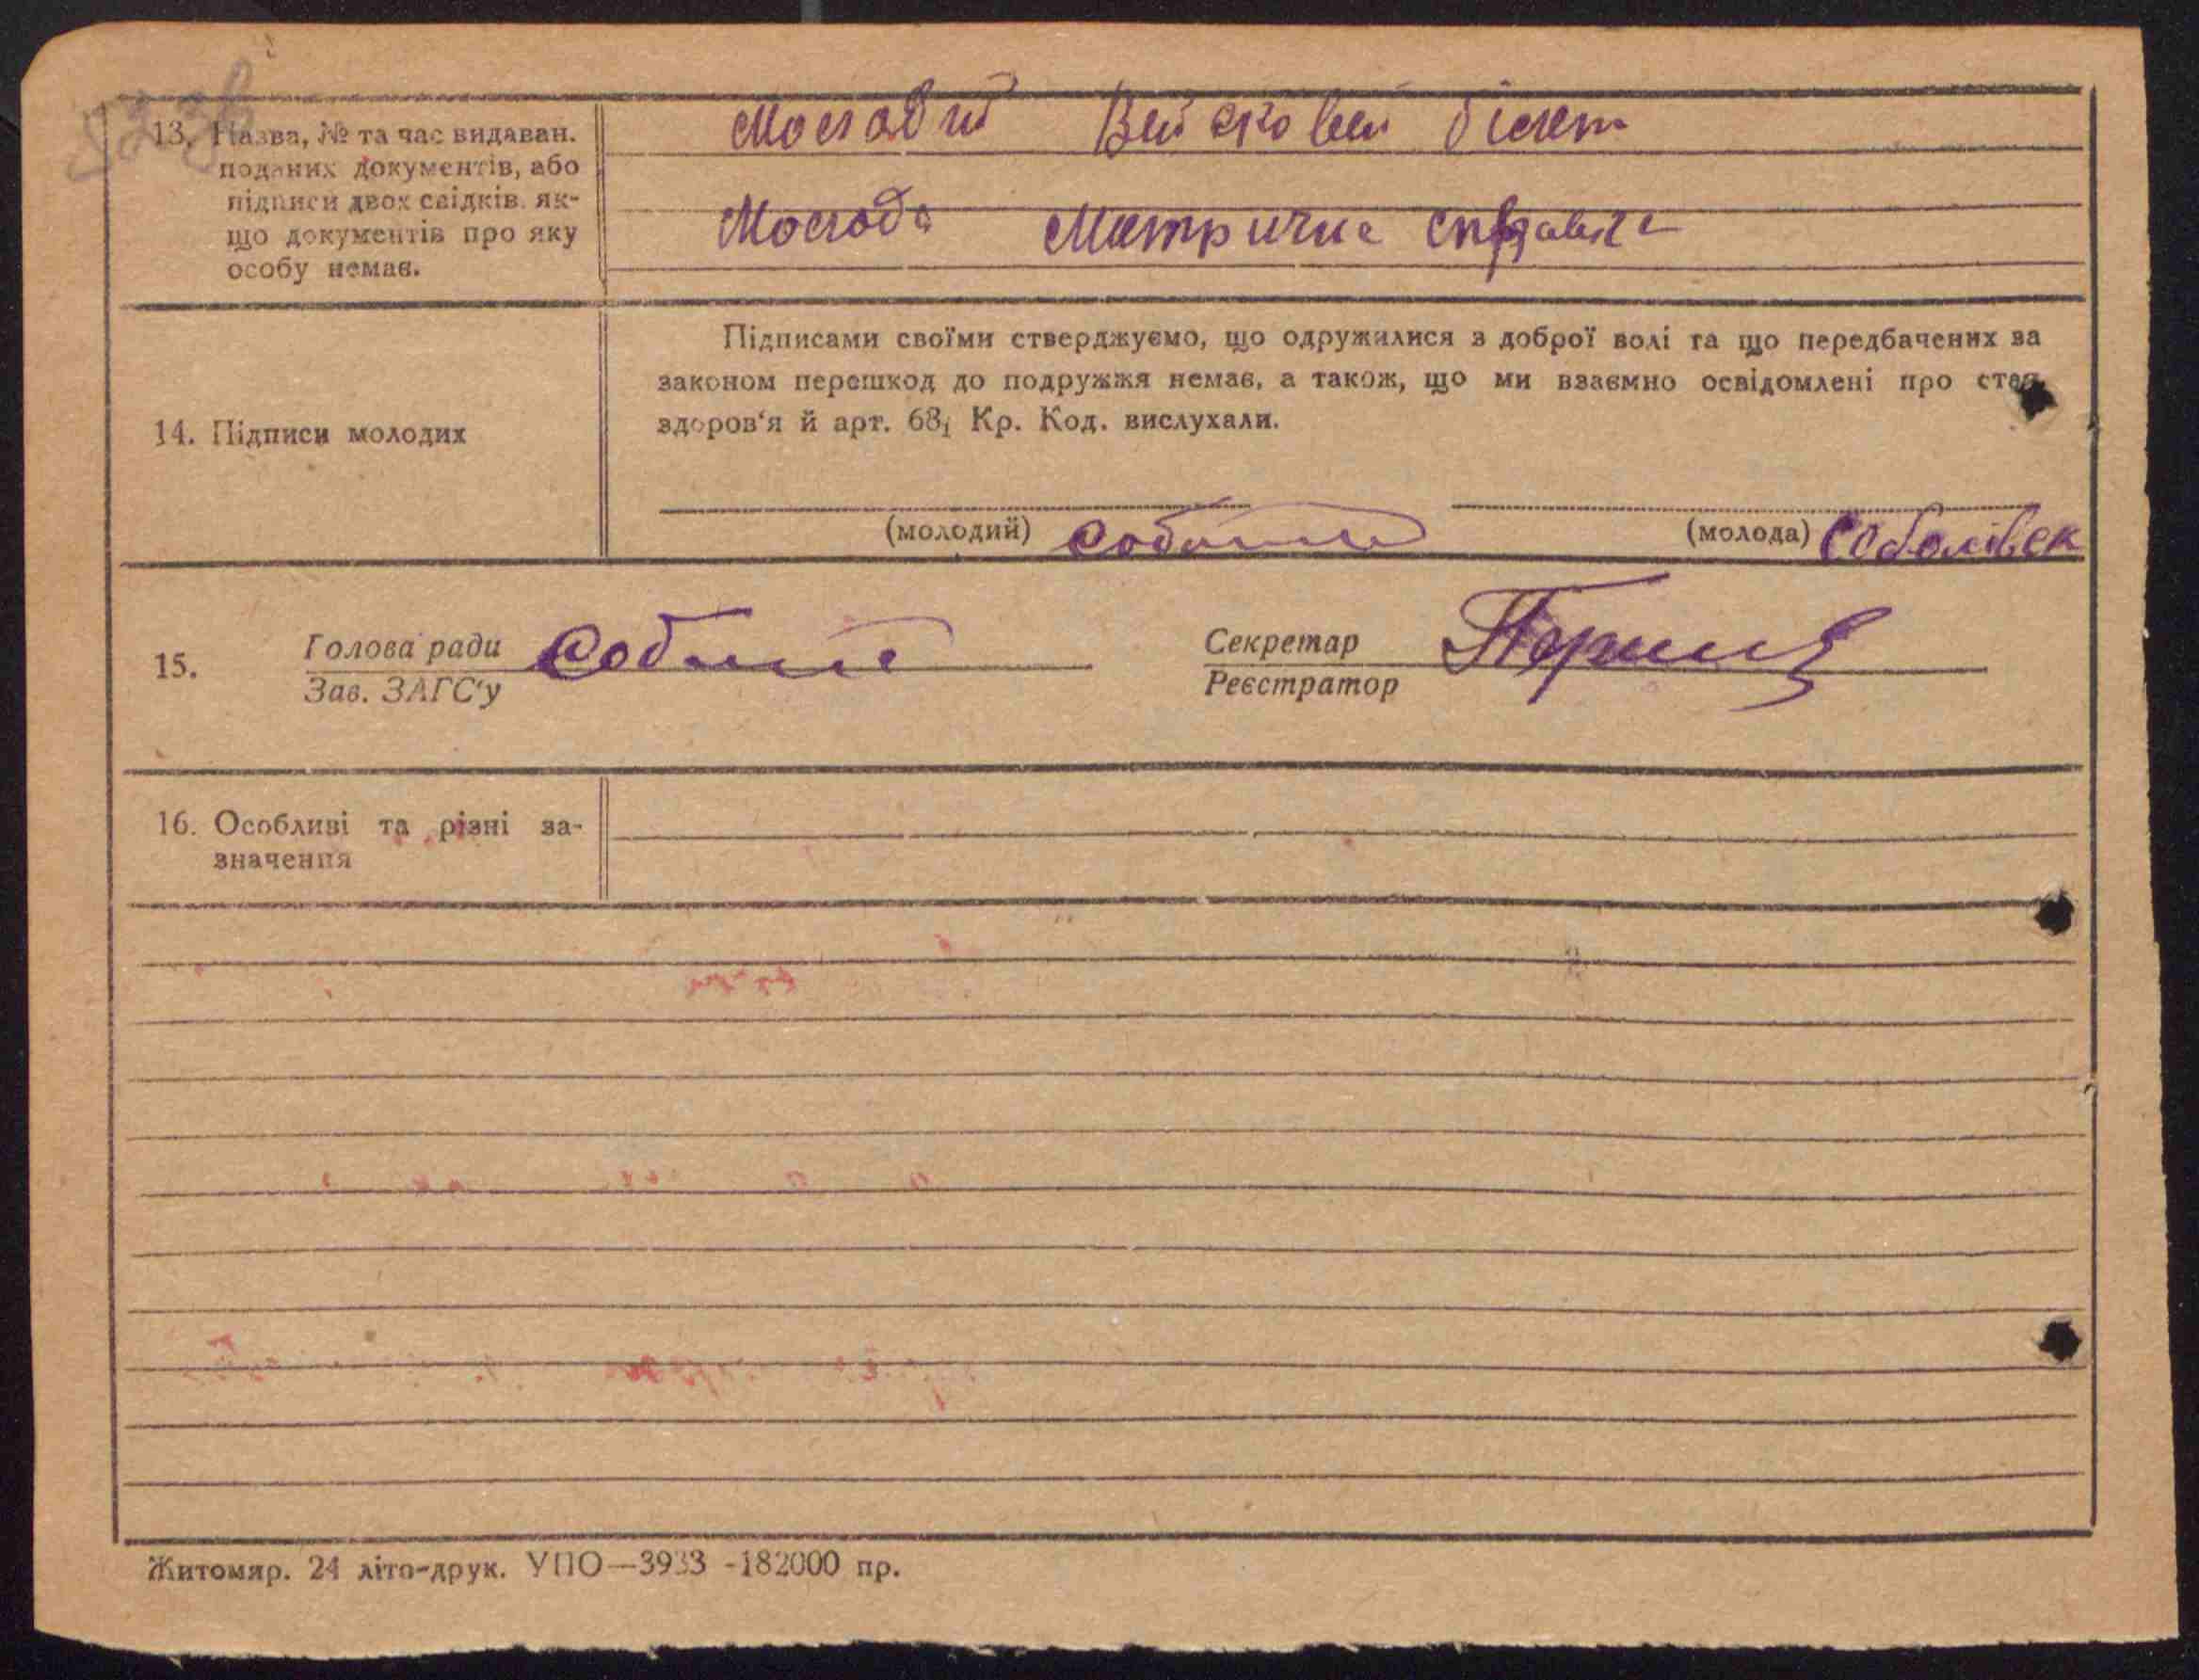 13. Назва, № та час видаван.
поданих документів, або
підписи двох свідків, як-
що документів про яку
особу немає.
Молодий Війсковей білет
Молода Метричне справка
14. Підписи молодих
Підписами своїми стверджуємо, що одружилися з доброї волі та що передбачених за
законом перешкод до подружжя немає, а також, що ми взаємно освідомлені про стан
здоров'я й арт. 68₁ Кр. Код. вислухали.
(молодий) (молода)
15.
Голова ради
Зав. ЗАГС'у
Секретар
Реєстратор
16. Особливі та різні за-
значення
Житомир. 24 літо-друк. УПО—3933 -182000 пр.